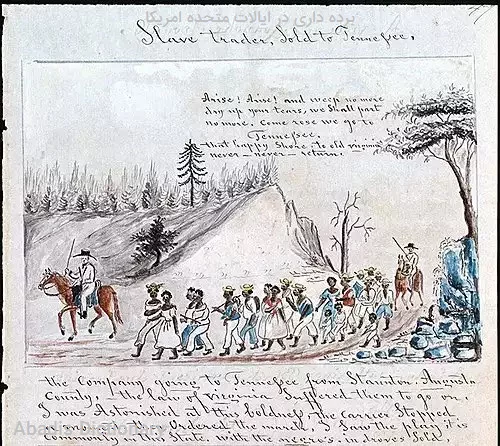 برده داری در ایالات متحده امریکا
Slave trader, Sold to Tennessee,
Arise! Arise! and weep no more
dry up your tears, we shall part
no more. Come rose we go to
Tennessee.
that happy Shore to old virginia
never — never — return.
the Company going to Tennessee from Staunton. Augusta
County, – the law of virginia Suffered them to go on.
I was Astonished at this boldness. the carrier Stopped
a moment, then Ordered the march, I Saw the play it is
Commonly in this State, with the negro's in droves Sold.
Abadis Dictionary